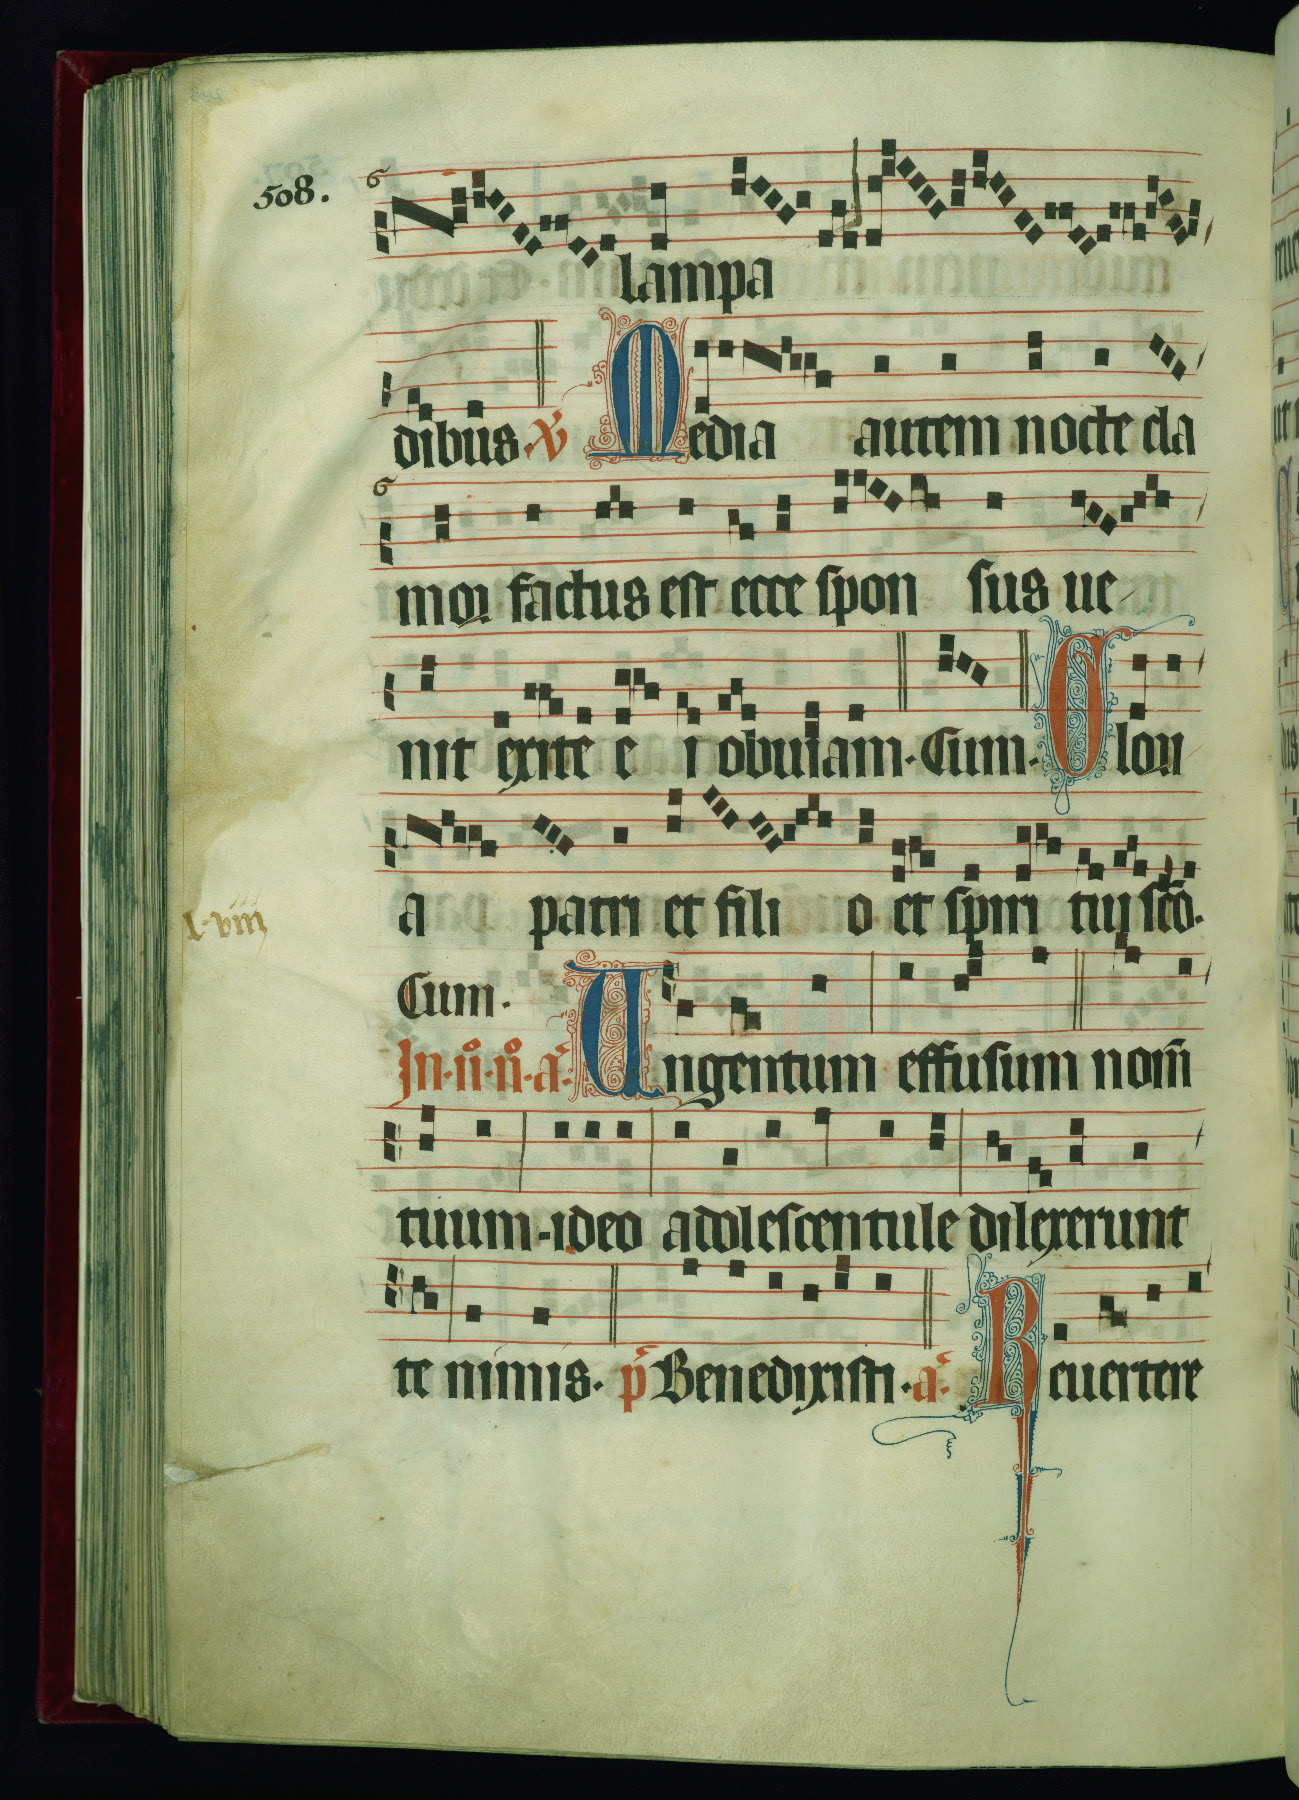 508.
lampa
dibus ℣ Media autem nocte cla
mor factus est ecce spon sus ue
nit exite e i obuiam. Cum. Glori
a patri et fili o et spiri tui scō.
l. viii
Cum.
In. ii°. n°. a. Ungentum effusum nom̄
tuum. ideo adolescentule dilexerunt
te nimis. p̄ Benedixisti. a. Reuertere